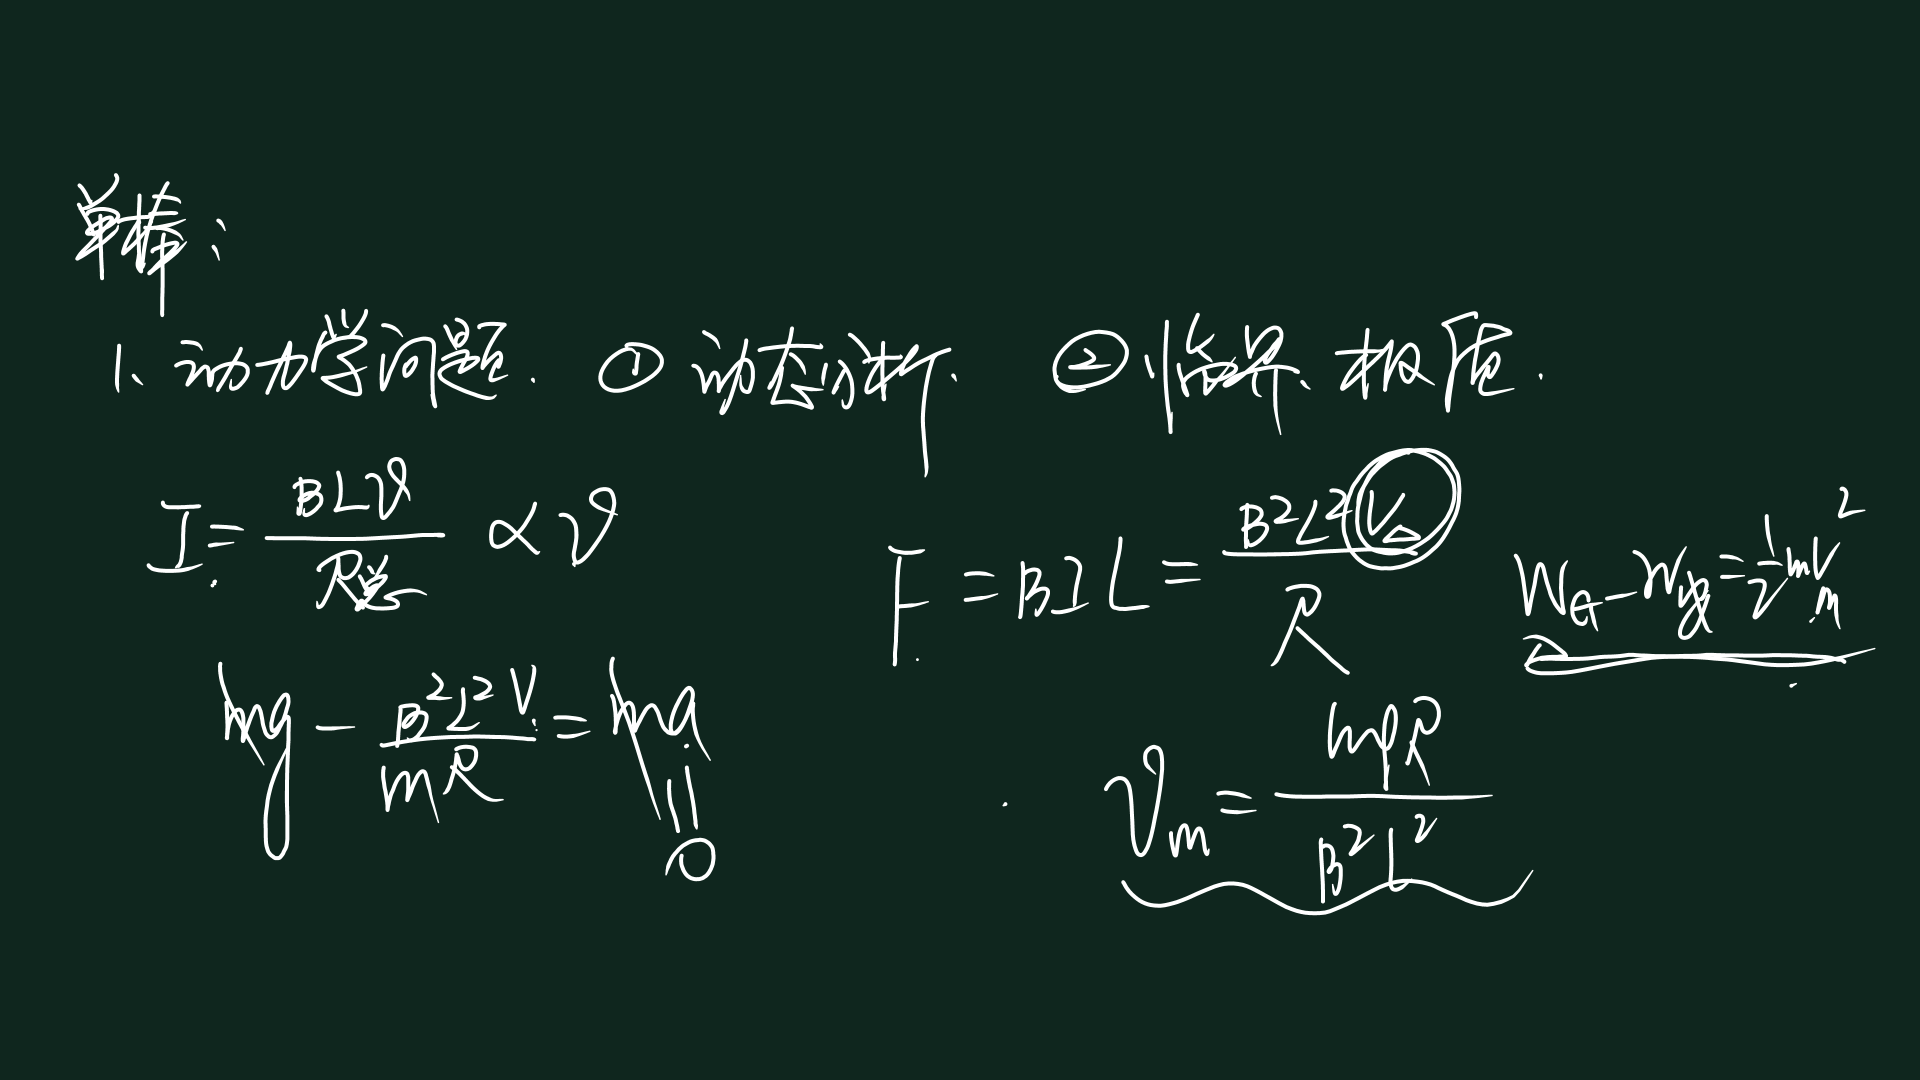 单棒：
1、动力学问题. ① 动态分析. ② 临界、极值.
I = BLv / R总 ∝ v
F = BIL = B²L²v / R
W_G - W_安 = 1/2 mv_m²
mg - B²L²v / mR = ma = 0
v_m = mgR / B²L²